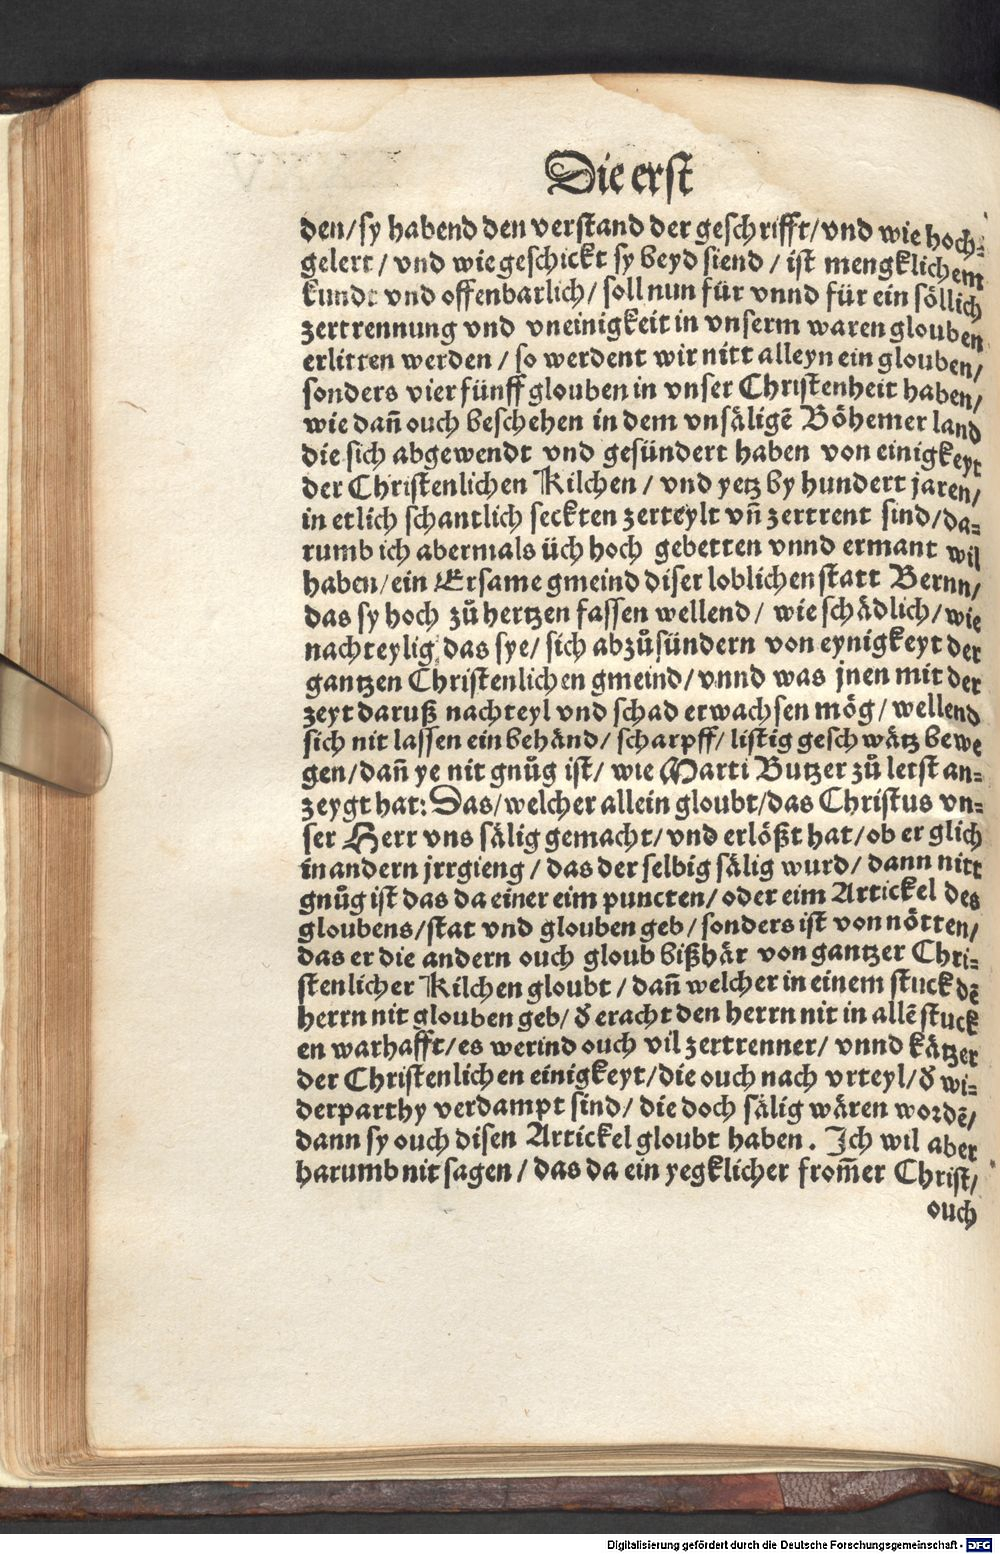 Die erst
den/ sy habend den verstand der geschrifft/ vnd wie hoch-
gelert/ vnd wie geschickt sy beyd siend/ ist mengklichem
kundt vnd offenbarlich/ soll nun für vnnd für ein söllich
zertrennung vnd vneinigkeit in vnserm waren glouben
erlitten werden/ so werdent wir nitt alleyn ein glouben/
sonders vier fünff glouben in vnser Christenheit haben/
wie dañ ouch beschehen in dem vnsäligē Böhemer land
die sich abgewendt vnd gesündert haben von einigkeyt
der Christenlichen Kilchen/ vnd yetz by hundert jaren/
in etlich schantlich seckten zerteylt vñ zertrent sind/ da-
rumb ich abermals üch hoch gebetten vnnd ermant wil
haben/ ein Ersame gmeind diser loblichen statt Bernn/
das sy hoch zů hertzen fassen wellend/ wie schädlich/ wie
nachteylig das sye/ sich abzůsündern von eynigkeyt der
gantzen Christenlichen gmeind/ vnnd was jnen mit der
zeyt daruß nachteyl vnd schad erwachsen mög/ wellend
sich nit lassen ein behänd/ scharpff/ listig geschwätz bewe
gen/ dañ ye nit gnůg ist/ wie Marti Butzer zů letst an-
zeygt hat: Das/ welcher allein gloubt/ das Christus vn-
ser Herr vns sälig gemacht/ vnd erlößt hat/ ob er glich
in andern jrrgieng/ das der selbig sälig wurd/ dann nitt
gnůg ist das da einer eim puncten/ oder eim Artickel des
gloubens/ stat vnd glouben geb/ sonders ist von nötten/
das er die andern ouch gloub bißhär von gantzer Chri-
stenlicher Kilchen gloubt/ dañ welcher in einem stuck dē
herrn nit glouben geb/ d̕ eracht den herrn nit in allē stuck
en warhafft/ es werind ouch vil zertrenner/ vnnd kätzer
der Christenlichen einigkeyt/ die ouch nach vrteyl/ d̕ wi-
derparthy verdampt sind/ die doch sälig wären wordē/
dann sy ouch disen Artickel gloubt haben. Ich wil aber
harumb nit sagen/ das da ein yegklicher from̃er Christ/
ouch
Digitalisierung gefördert durch die Deutsche Forschungsgemeinschaft - DFG